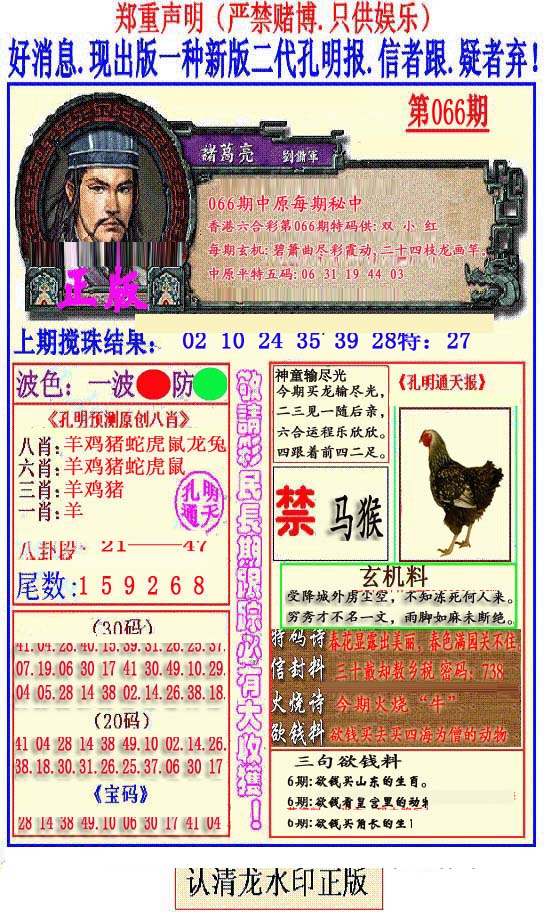 郑重声明（严禁赌博.只供娱乐）
好消息.现出版一种新版二代孔明报.信者跟.疑者弃!
第066期
諸葛亮 劉備軍
066期中原每期秘中
香港六合彩第066期特码供: 双 小 红
每期玄机: 碧箫曲尽彩霞动, 二十四枝龙画竿。
中原平特五码: 06 31 19 44 03
正版
上期搅珠结果: 02 10 24 35 39 28特: 27
波色: 一波 防
《孔明预测原创八肖》
八肖: 羊鸡猪蛇虎鼠龙兔
六肖: 羊鸡猪蛇虎鼠
三肖: 羊鸡猪
一肖: 羊
孔明通天
21——47
尾数: 1 5 9 2 6 8
(30码)
41.04.28.40.15.39.31.26.25.37.
07.19.06 30 17 41 30.49.10.29.
04 05.28 14 38 02.14.26 38.18.
(20码)
41 04 28 14 38 49.10 02.14.26.
38.18.30.31.26.25.37.06 30 17
《宝码》
28 14 38 49.10 06 30 17 41 04
敬請彩民長期跟踪必有大收獲！
神童输尽光
今期买龙输尽光,
二三见一随后亲,
六合运程乐欣欣。
四跟着前四二足。
《孔明通天报》
禁 马猴
玄机料
受降城外虏尘空，不知冻死何人来。
穷秀才不名一文，雨脚如麻未断绝。
特码诗 春花显露出美丽，春色满园关不住
信封料 三十戴却数乡税 密码: 738
火烧诗 今期火烧“牛”
欲钱料 欲钱买去买四海为僧的动物
三句欲钱料
6期: 欲钱买山东的生肖。
6期: 欲钱看皇宫里的动
6期: 欲钱买角长的生
认清龙水印正版